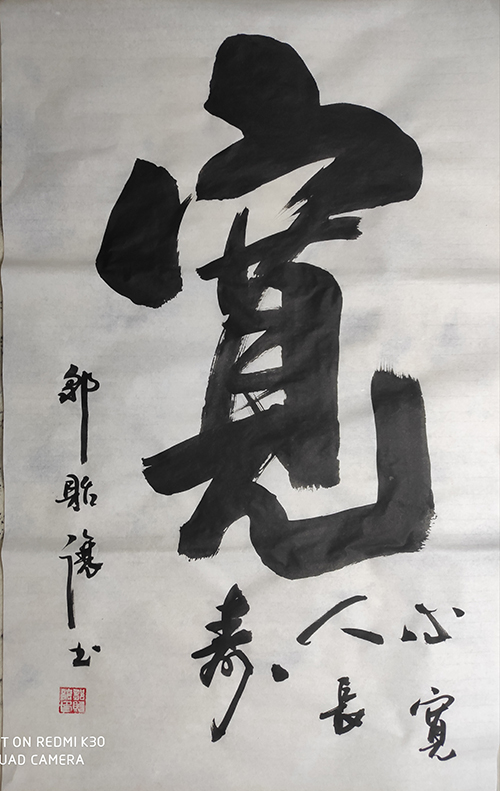 寬
心寬
人長
寿
貽讓书
T ON REDMI K30
UAD CAMERA